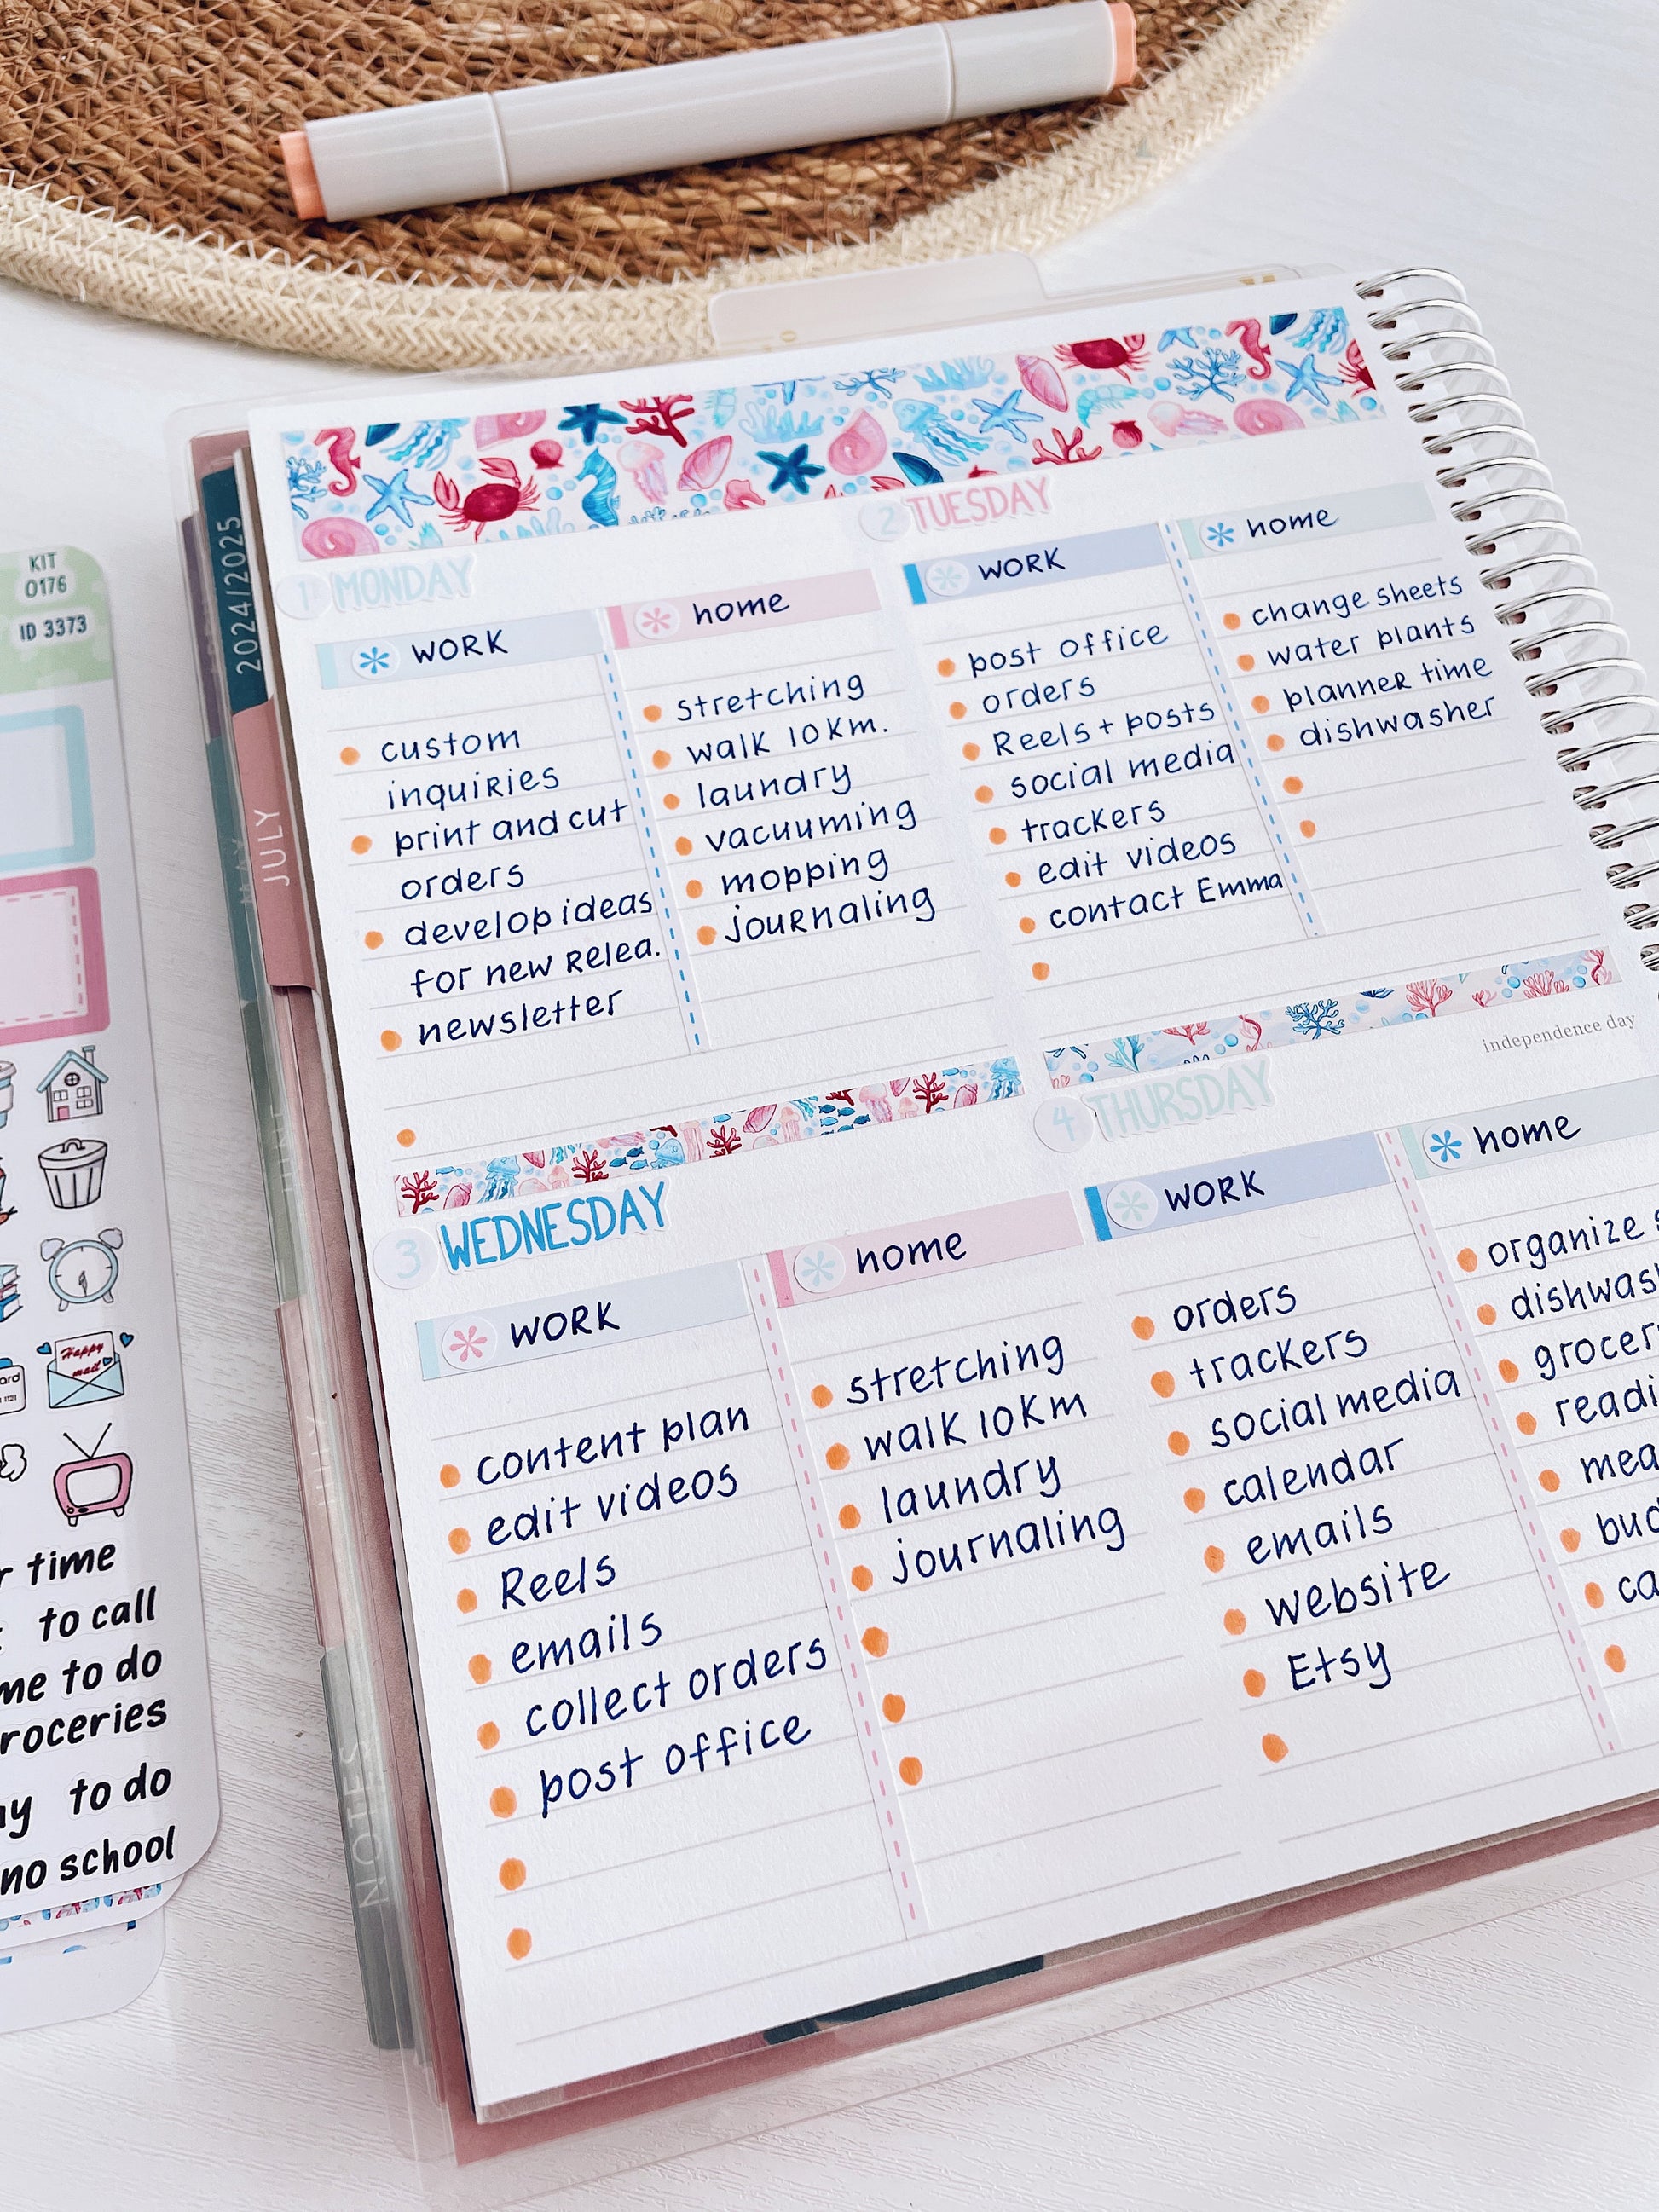 KIT
0176
ID 3373
Happy
mail
time
to call
to do
to do
no school
2024/2025
MAY
JULY
JUNE
JULY
NOTES
1 MONDAY
WORK
custom
inquiries
print and cut
orders
develop ideas
for new relea.
newsletter
home
stretching
walk 10km.
laundry
vacuuming
mopping
journaling
2 TUESDAY
WORK
post office
orders
Reels + posts
social media
trackers
edit videos
contact Emma
home
change sheets
water plants
planner time
dishwasher
3 WEDNESDAY
WORK
content plan
edit videos
Reels
emails
collect orders
post office
home
stretching
walk 10km
laundry
journaling
independence day
4 THURSDAY
WORK
orders
trackers
social media
calendar
emails
website
Etsy
home
organize